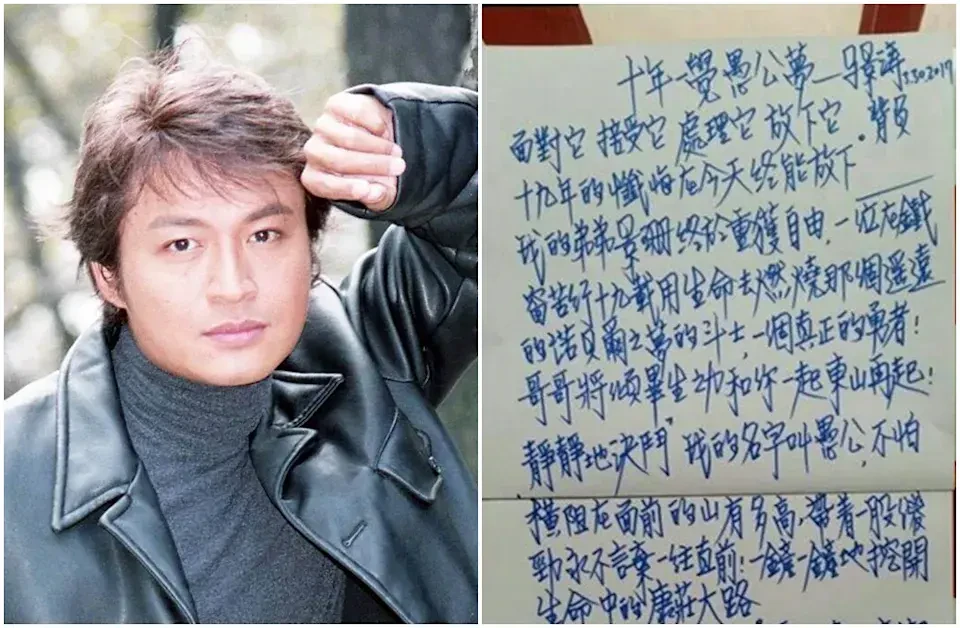 十年一覺愚公夢—馬景濤 5.30.2017
面對它 接受它 處理它 放下它。背負
十九年的懺悔在今天終能放下
我的弟弟景珊終於重獲自由,一位在鐵
窗苦行十九載用生命去燃燒那個遥遠
的諾貝爾之夢的斗士,一個真正的勇者!
哥哥將傾畢生之力和你一起東山再起!
靜靜地決鬥,我的名字叫愚公,不怕
橫阻在面前的山有多高,帶着一股傻
勁永不言棄一往直前!一鏟一鏟地挖開
生命中的康莊大路